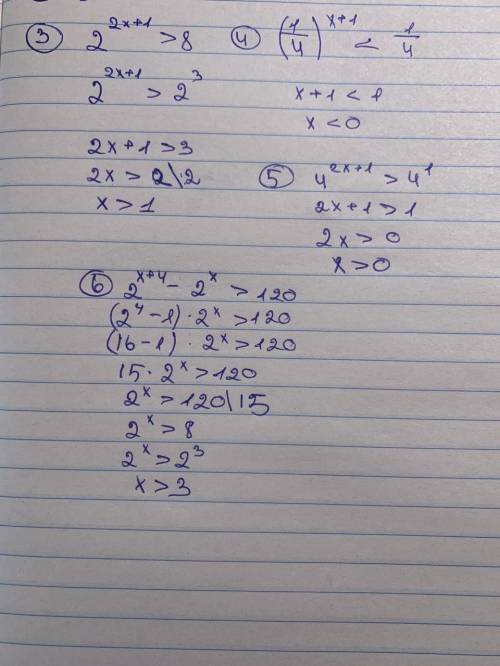 ③ 2^(2x+1) > 8
2^(2x+1) > 2^3
2x+1 > 3
2x > 2 \ 2
x > 1
④ (1/4)^(x+1) < 1/4
x+1 < 1
x < 0
⑤ 4^(2x+1) > 4^1
2x+1 > 1
2x > 0
x > 0
⑥ 2^(x+4) - 2^x > 120
(2^4 - 1) · 2^x > 120
(16 - 1) · 2^x > 120
15 · 2^x > 120
2^x > 120 \ 15
2^x > 8
2^x > 2^3
x > 3